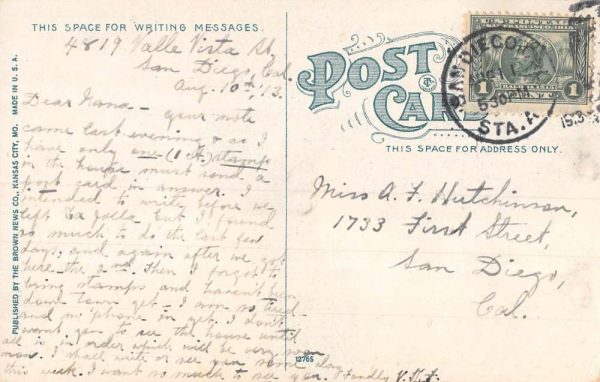 THIS SPACE FOR WRITING MESSAGES.
4819 Valle Vista St,
San Diego, Cal.
Aug. 10th '13.
Dear Nana - your note
came last evening & as I
have only one (1 ct) stamp
in the house must send a
post card in answer. I
intended to write before we
left La Jolla but I found
so much to do the last few
days, and again after we got
here the 2nd. Then I forgot to
bring stamps and haven't been
down town yet. I am so tired
and no 'phone in yet. I don't
want you to see the house until
all is in order which will be very soon
now. I shall write or see you some day
this week. I want so much to see you. Fondly
PUBLISHED BY THE BROWN NEWS CO., KANSAS CITY, MO. MADE IN U.S.A.
POST
CARD
THIS SPACE FOR ADDRESS ONLY.
SAN DIEGO
530 PM
STA. A
U.S. POSTAGE
SAN FRANCISCO 1915
1 1
Miss A. F. Hutchinson,
1733 First Street,
San Diego,
Cal.
12765